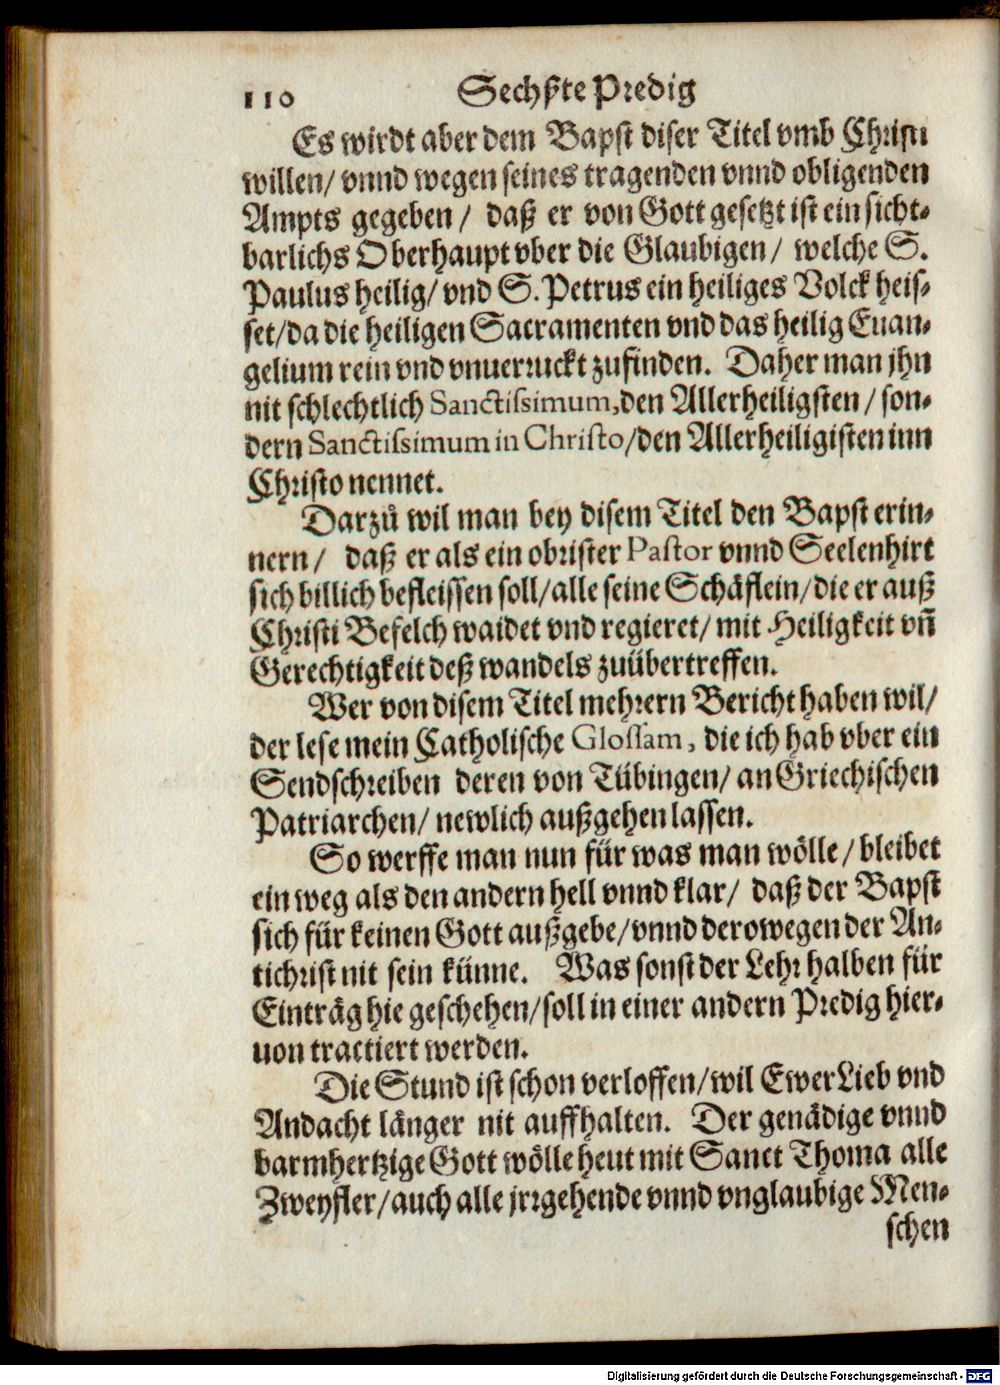 110 Sechßte Predig
Es wirdt aber dem Bapst diser Titel vmb Christi
willen/ vnnd wegen seines tragenden vnnd obligenden
Ampts gegeben/ daß er von Gott gesetzt ist ein sicht-
barlichs Oberhaupt vber die Glaubigen/ welche S.
Paulus heilig/ vnd S. Petrus ein heiliges Volck heis-
set/ da die heiligen Sacramenten vnd das heilig Euan-
gelium rein vnd vnuerruckt zufinden. Daher man jhn
nit schlechtlich Sanctissimum, den Allerheiligsten/ son-
dern Sanctissimum in Christo/ den Allerheiligisten inn
Christo nennet.
Darzů wil man bey disem Titel den Bapst erin-
nern/ daß er als ein obrister Pastor vnnd Seelenhirt
sich billich befleissen soll/ alle seine Schäflein/ die er auß
Christi Befelch waidet vnd regieret/ mit Heiligkeit vñ
Gerechtigkeit deß wandels zuübertreffen.
Wer von disem Titel mehrern Bericht haben wil/
der lese mein Catholische Glossam, die ich hab vber ein
Sendschreiben deren von Tübingen/ an Griechischen
Patriarchen/ newlich außgehen lassen.
So werffe man nun für was man wölle/ bleibet
ein weg als den andern hell vnnd klar/ daß der Bapst
sich für keinen Gott außgebe/ vnnd derowegen der An-
tichrist nit sein künne. Was sonst der Lehr halben für
Einträg hie geschehen/ soll in einer andern Predig hier-
uon tractiert werden.
Die Stund ist schon verloffen/ wil Ewer Lieb vnd
Andacht länger nit auffhalten. Der genädige vnnd
barmhertzige Gott wölle heut mit Sanct Thoma alle
Zweyfler/ auch alle jrrgehende vnnd vnglaubige Men-
schen
Digitalisierung gefördert durch die Deutsche Forschungsgemeinschaft - DFG